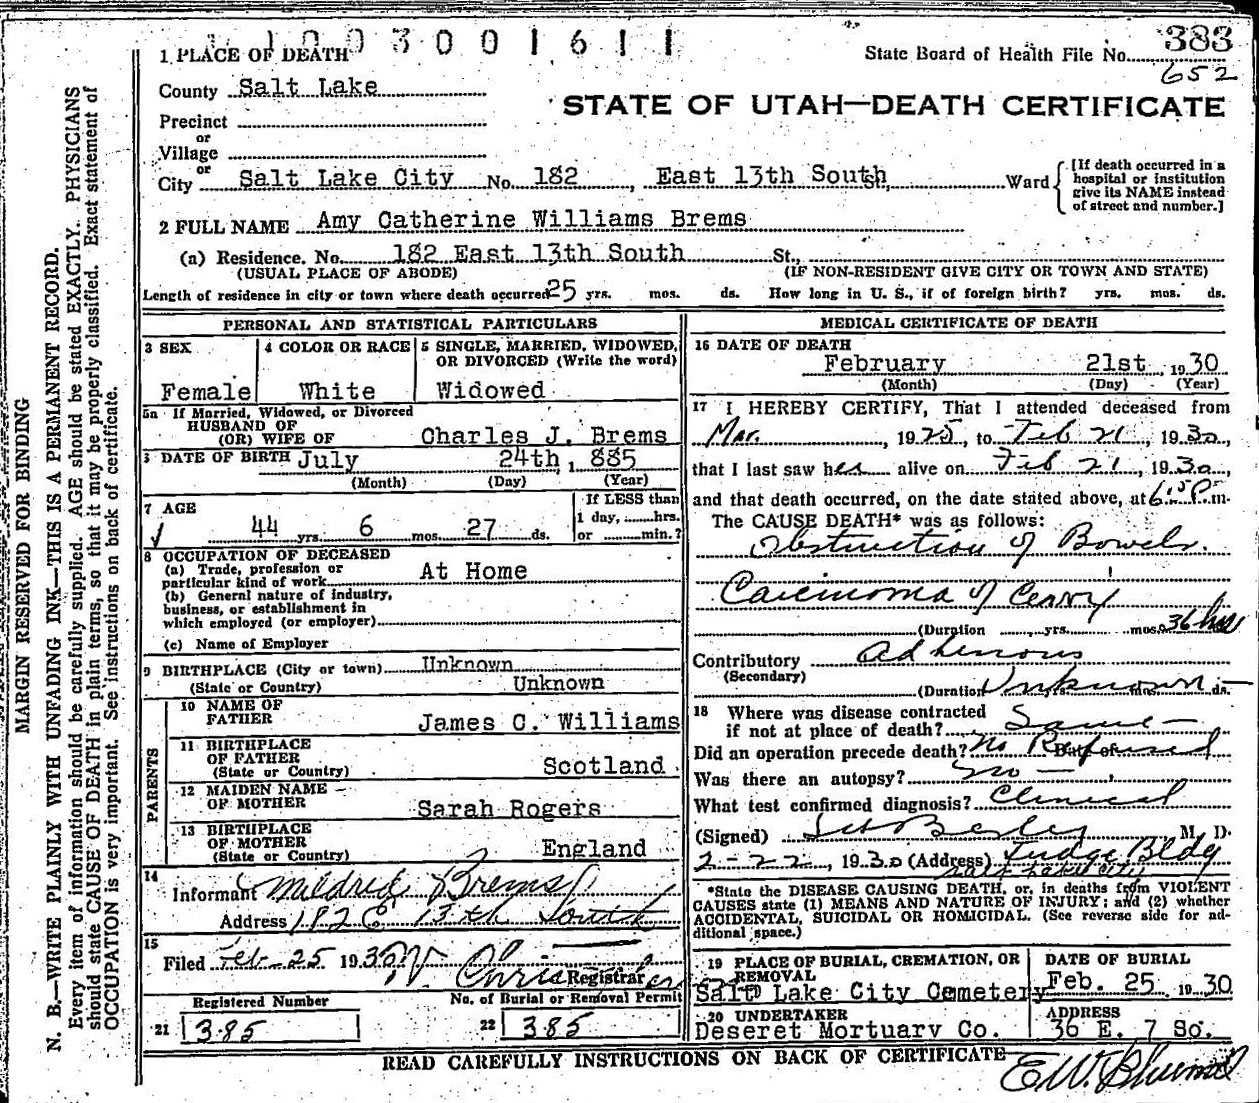 1003001611
1 PLACE OF DEATH
State Board of Health File No. 383
652
County Salt Lake
STATE OF UTAH—DEATH CERTIFICATE
Precinct
or
Village
or
City Salt Lake City No. 182, East 13th South, Ward
[If death occurred in a hospital or institution give its NAME instead of street and number.]
2 FULL NAME Amy Catherine Williams Brems
(a) Residence. No. 182 East 13th South St.,
(USUAL PLACE OF ABODE) (IF NON-RESIDENT GIVE CITY OR TOWN AND STATE)
Length of residence in city or town where death occurred 25 yrs. mos. ds. How long in U. S., if of foreign birth? yrs. mos. ds.
MARGIN RESERVED FOR BINDING
N. B.—WRITE PLAINLY WITH UNFADING INK—THIS IS A PERMANENT RECORD.
Every item of information should be carefully supplied. AGE should be stated EXACTLY. PHYSICIANS
should state CAUSE OF DEATH in plain terms, so that it may be properly classified. Exact statement of
OCCUPATION is very important. See instructions on back of certificate.
PERSONAL AND STATISTICAL PARTICULARS
3 SEX
Female
4 COLOR OR RACE
White
5 SINGLE, MARRIED, WIDOWED,
OR DIVORCED (Write the word)
Widowed
5a If Married, Widowed, or Divorced
HUSBAND OF
(OR) WIFE OF Charles J. Brems
DATE OF BIRTH July 24th, 1885
(Month) (Day) (Year)
7 AGE
44 yrs. 6 mos. 27 ds.
If LESS than
1 day, hrs.
or min.?
8 OCCUPATION OF DECEASED
(a) Trade, profession or
particular kind of work At Home
(b) General nature of industry,
business, or establishment in
which employed (or employer)
(c) Name of Employer
9 BIRTHPLACE (City or town) Unknown
(State or Country) Unknown
PARENTS
10 NAME OF
FATHER James C. Williams
11 BIRTHPLACE
OF FATHER
(State or Country) Scotland
12 MAIDEN NAME
OF MOTHER Sarah Rogers
13 BIRTHPLACE
OF MOTHER
(State or Country) England
14
Informant Mildred Brems
Address 182 E 13th South
15
Filed Feb-25 1930 Registrar
Registered Number
21 385
No. of Burial or Removal Permit
22 385
MEDICAL CERTIFICATE OF DEATH
16 DATE OF DEATH
February 21st 1930
(Month) (Day) (Year)
17 I HEREBY CERTIFY, That I attended deceased from
Mar. , 1925, to Feb 21, 1930,
that I last saw her alive on Feb 21, 1930,
and that death occurred, on the date stated above, at m.
The CAUSE DEATH* was as follows:
Obstruction of Bowels.
Carcinoma of
(Duration yrs. mos. 36 hrs
Contributory Adhesions
(Secondary)
(Duration Unknown ds.
18 Where was disease contracted
if not at place of death? Same
Did an operation precede death? No Refused Date of
Was there an autopsy? No
What test confirmed diagnosis? Clinical
(Signed) M. D.
2-22, 1930 (Address) Judge Bldg
Salt Lake City
*State the DISEASE CAUSING DEATH, or, in deaths from VIOLENT
CAUSES state (1) MEANS AND NATURE OF INJURY; and (2) whether
ACCIDENTAL, SUICIDAL OR HOMICIDAL. (See reverse side for ad-
ditional space.)
19 PLACE OF BURIAL, CREMATION, OR
REMOVAL
Salt Lake City Cemetery
DATE OF BURIAL
Feb. 25 1930
20 UNDERTAKER
Deseret Mortuary Co.
ADDRESS
36 E. 7 So.
READ CAREFULLY INSTRUCTIONS ON BACK OF CERTIFICATE